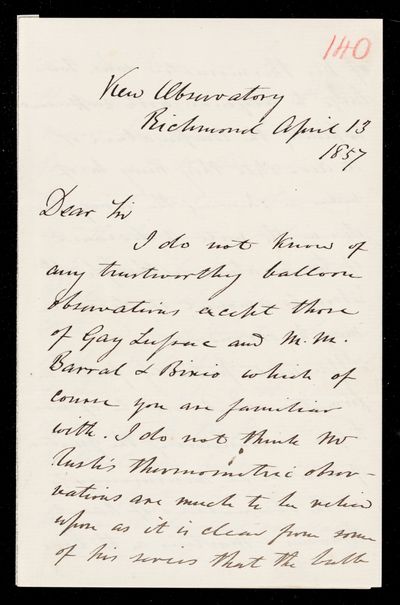 140
Kew Observatory
Richmond April 13
1857
Dear Sir
I do not know of
any trustworthy balloon
observations except those
of Gay Lussac and M.M.
Barral & Bixio which of
course you are familiar
with. I do not think Mr
Rush's thermometric obser-
vations are much to be relied
upon as it is clear from some
of his series that the bulb